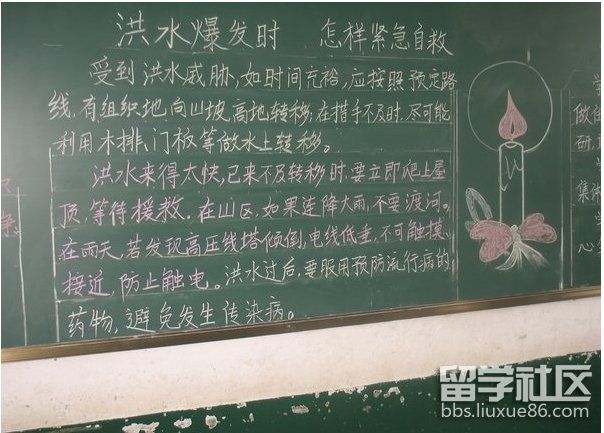 洪水爆发时 怎样紧急自救
受到洪水威胁,如时间充裕,应按照预定路
线,有组织地向山坡、高地转移,在措手不及时,尽可能
利用木排、门板等做水上转移。
洪水来得太快,已来不及转移时,要立即爬上屋
顶,等待援救。在山区,如果连降大雨,不要渡河。
在雨天,若发现高压线塔倾倒,电线低垂,不可触摸、
接近,防止触电。洪水过后,要服用预防流行病的
药物,避免发生传染病。
做
研
集体
心
留学社区
bbs.liuxue86.com